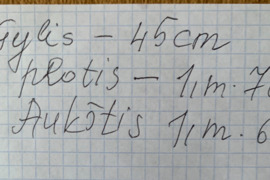 Gylis - 45cm
plotis - 1,m. 7
Aukštis 1,m. 6